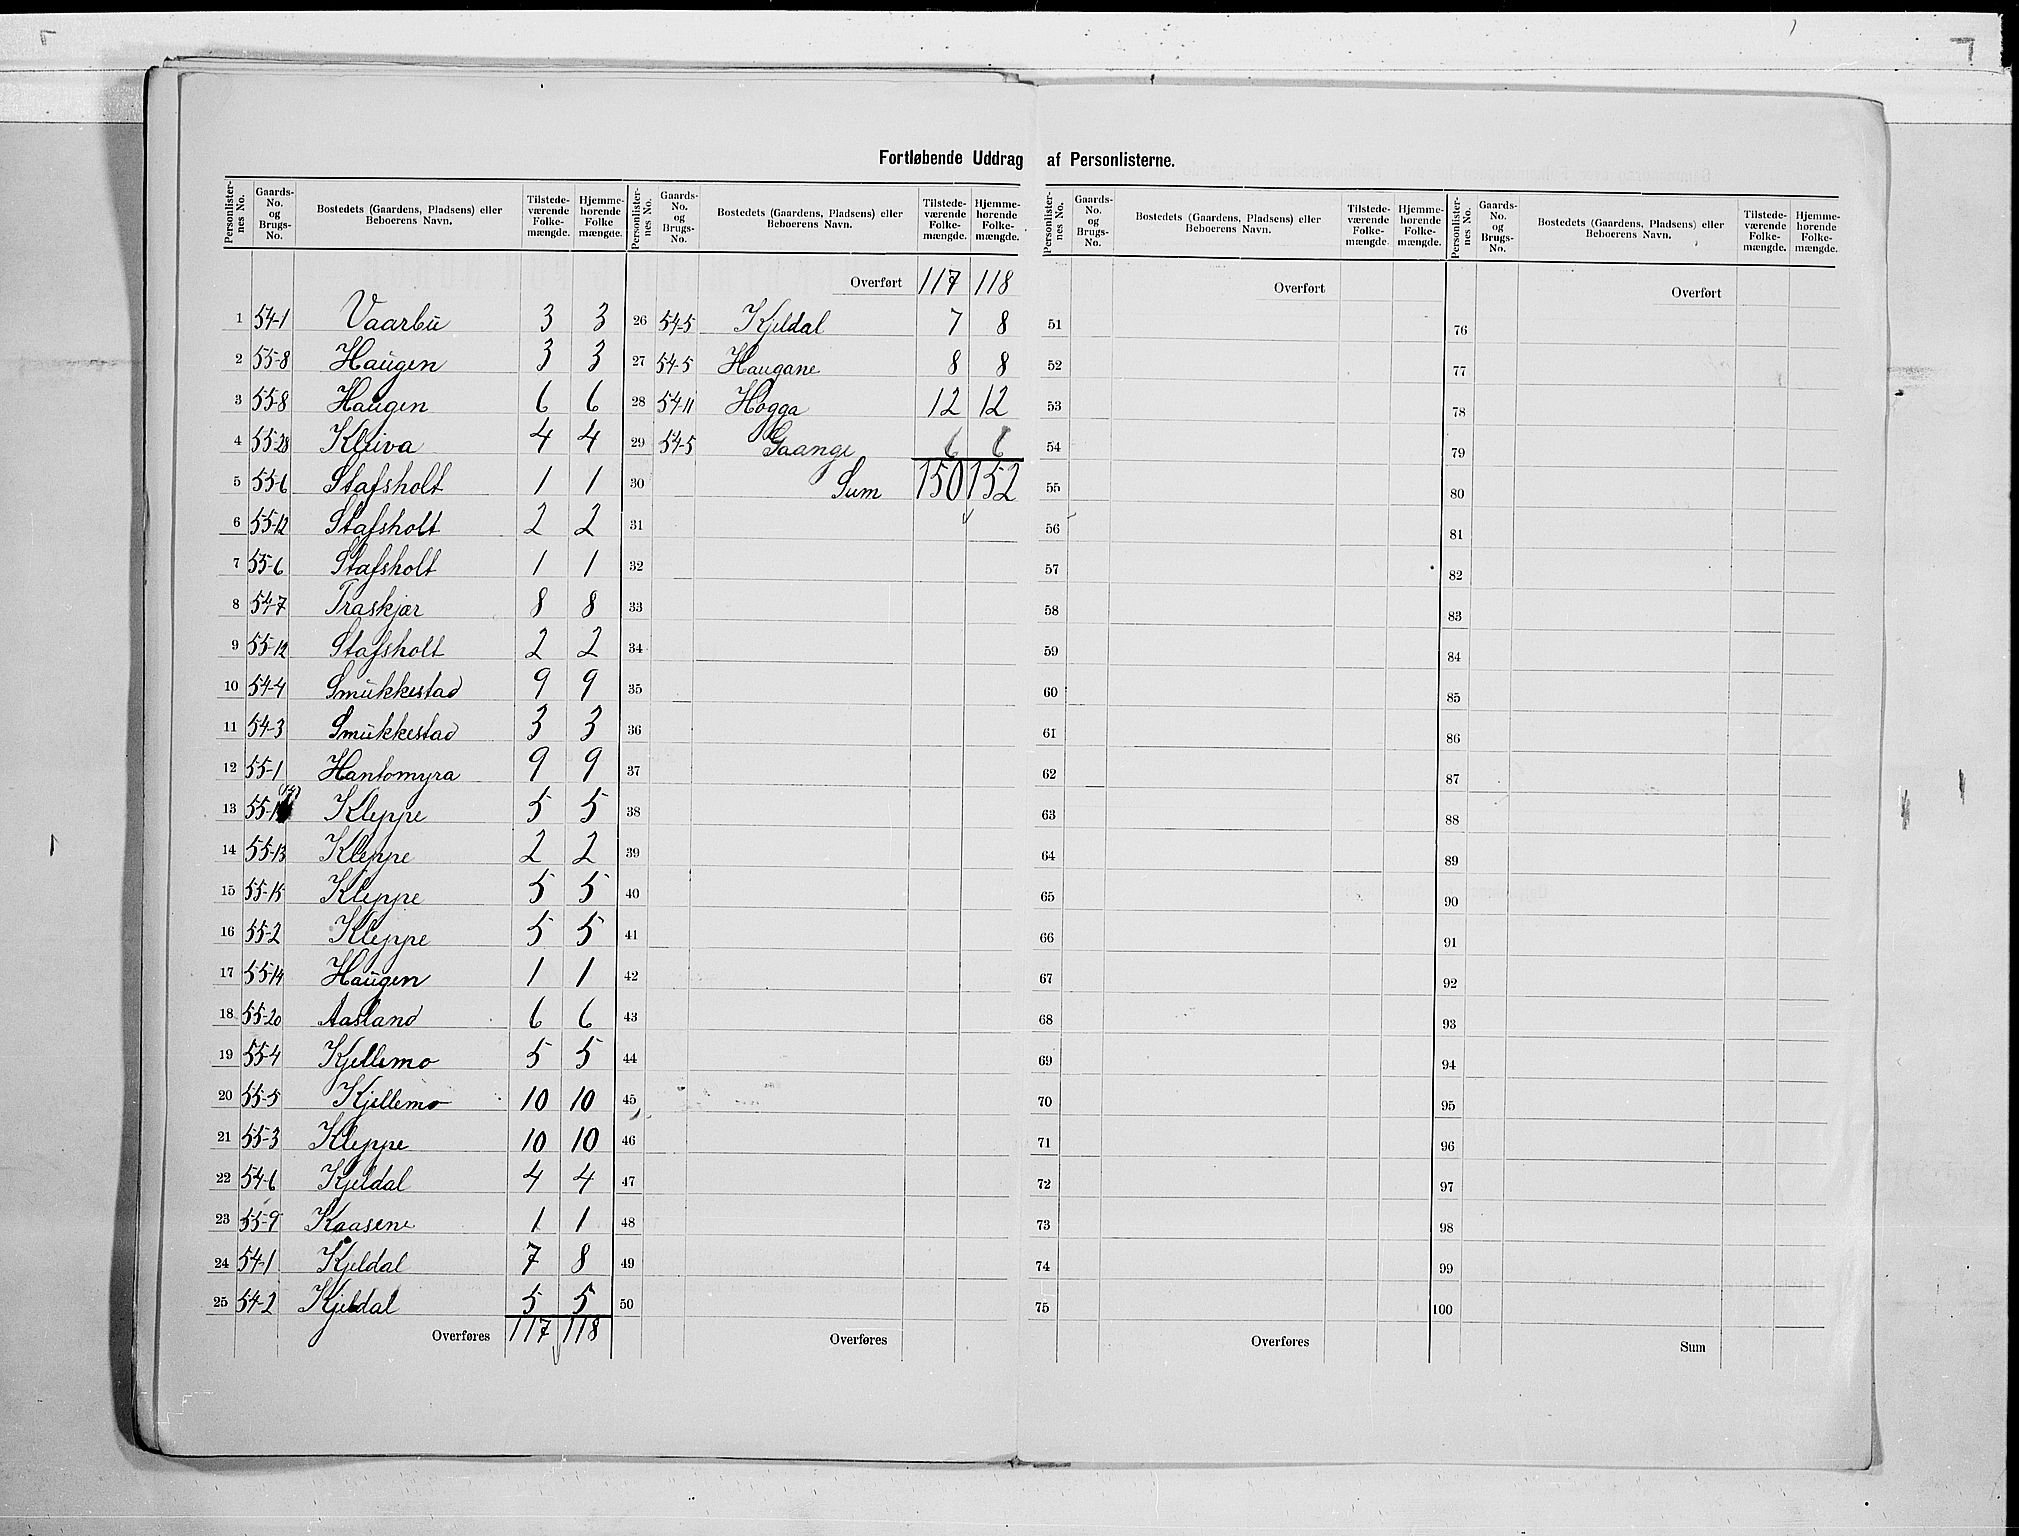 Fortløbende Uddrag af Personlisterne.
Personlisternes No. | Gaards-No. og Brugs-No. | Bostedets (Gaardens, Pladsens) eller Beboerens Navn. | Tilstedeværende Folkemængde. | Hjemmehørende Folkemængde.
1 54-1 Vaarbu 3 3
2 55-8 Haugen 3 3
3 55-8 Haugen 6 6
4 55-28 Kleiva 4 4
5 55-6 Stafsholt 1 1
6 55-12 Stafsholt 2 2
7 55-6 Stafsholt 1 1
8 54-7 Traskjær 8 8
9 55-12 Stafsholt 2 2
10 54-4 Smukkestad 9 9
11 54-3 Smukkestad 3 3
12 55-1 Hantomyra 9 9
13 Kleppe 5 5
14 55-13 Kleppe 2 2
15 55-15 Kleppe 5 5
16 55-2 Kleppe 5 5
17 55-14 Haugen 1 1
18 55-20 Aasland 6 6
19 55-4 Kjellemo 5 5
20 55-5 Kjellemo 10 10
21 55-3 Kleppe 10 10
22 54-6 Kjeldal 4 4
23 55-9 Kaasene 1 1
24 54-1 Kjeldal 7 8
25 54-2 Kjeldal 5 5
Overføres 117 118
Personlisternes No. | Gaards-No. og Brugs-No. | Bostedets (Gaardens, Pladsens) eller Beboerens Navn. | Tilstedeværende Folkemængde. | Hjemmehørende Folkemængde.
Overført 117 118
26 54-5 Kjeldal 7 8
27 54-5 Haugane 8 8
28 54-11 Hogga 12 12
29 54-5 Gaange 6 6
30 Sum 150 152
31
32
33
34
35
36
37
38
39
40
41
42
43
44
45
46
47
48
49
50
Overføres
Personlisternes No. | Gaards-No. og Brugs-No. | Bostedets (Gaardens, Pladsens) eller Beboerens Navn. | Tilstedeværende Folkemængde. | Hjemmehørende Folkemængde.
Overført
51
52
53
54
55
56
57
58
59
60
61
62
63
64
65
66
67
68
69
70
71
72
73
74
75
Overføres
Personlisternes No. | Gaards-No. og Brugs-No. | Bostedets (Gaardens, Pladsens) eller Beboerens Navn. | Tilstedeværende Folkemængde. | Hjemmehørende Folkemængde.
Overført
76
77
78
79
80
81
82
83
84
85
86
87
88
89
90
91
92
93
94
95
96
97
98
99
100
Sum